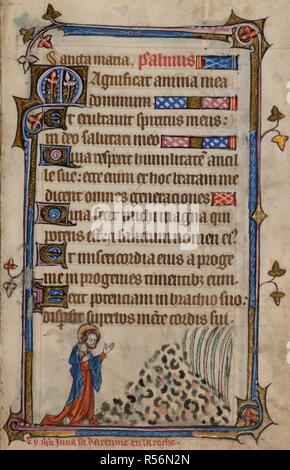 Sancta maria. psalmus
Magnificat anima mea
dominum
Et exultauit spiritus meus:
in deo salutari meo
Quia respexit humilitatem ancil
le sue: ecce enim ex hoc beatam me
dicent omnes generationes
Quia fecit michi magna qui
potens est: et sanctum nomen ei⁹
Et misericordia eius a proge
nie in progenies timentibꝫ eum
Fecit potenciam in brachio suo:
dispersit superbos mẽte cordis sui
Cy ihu iuna sa karenme en la roche.
alamy
R56N2N